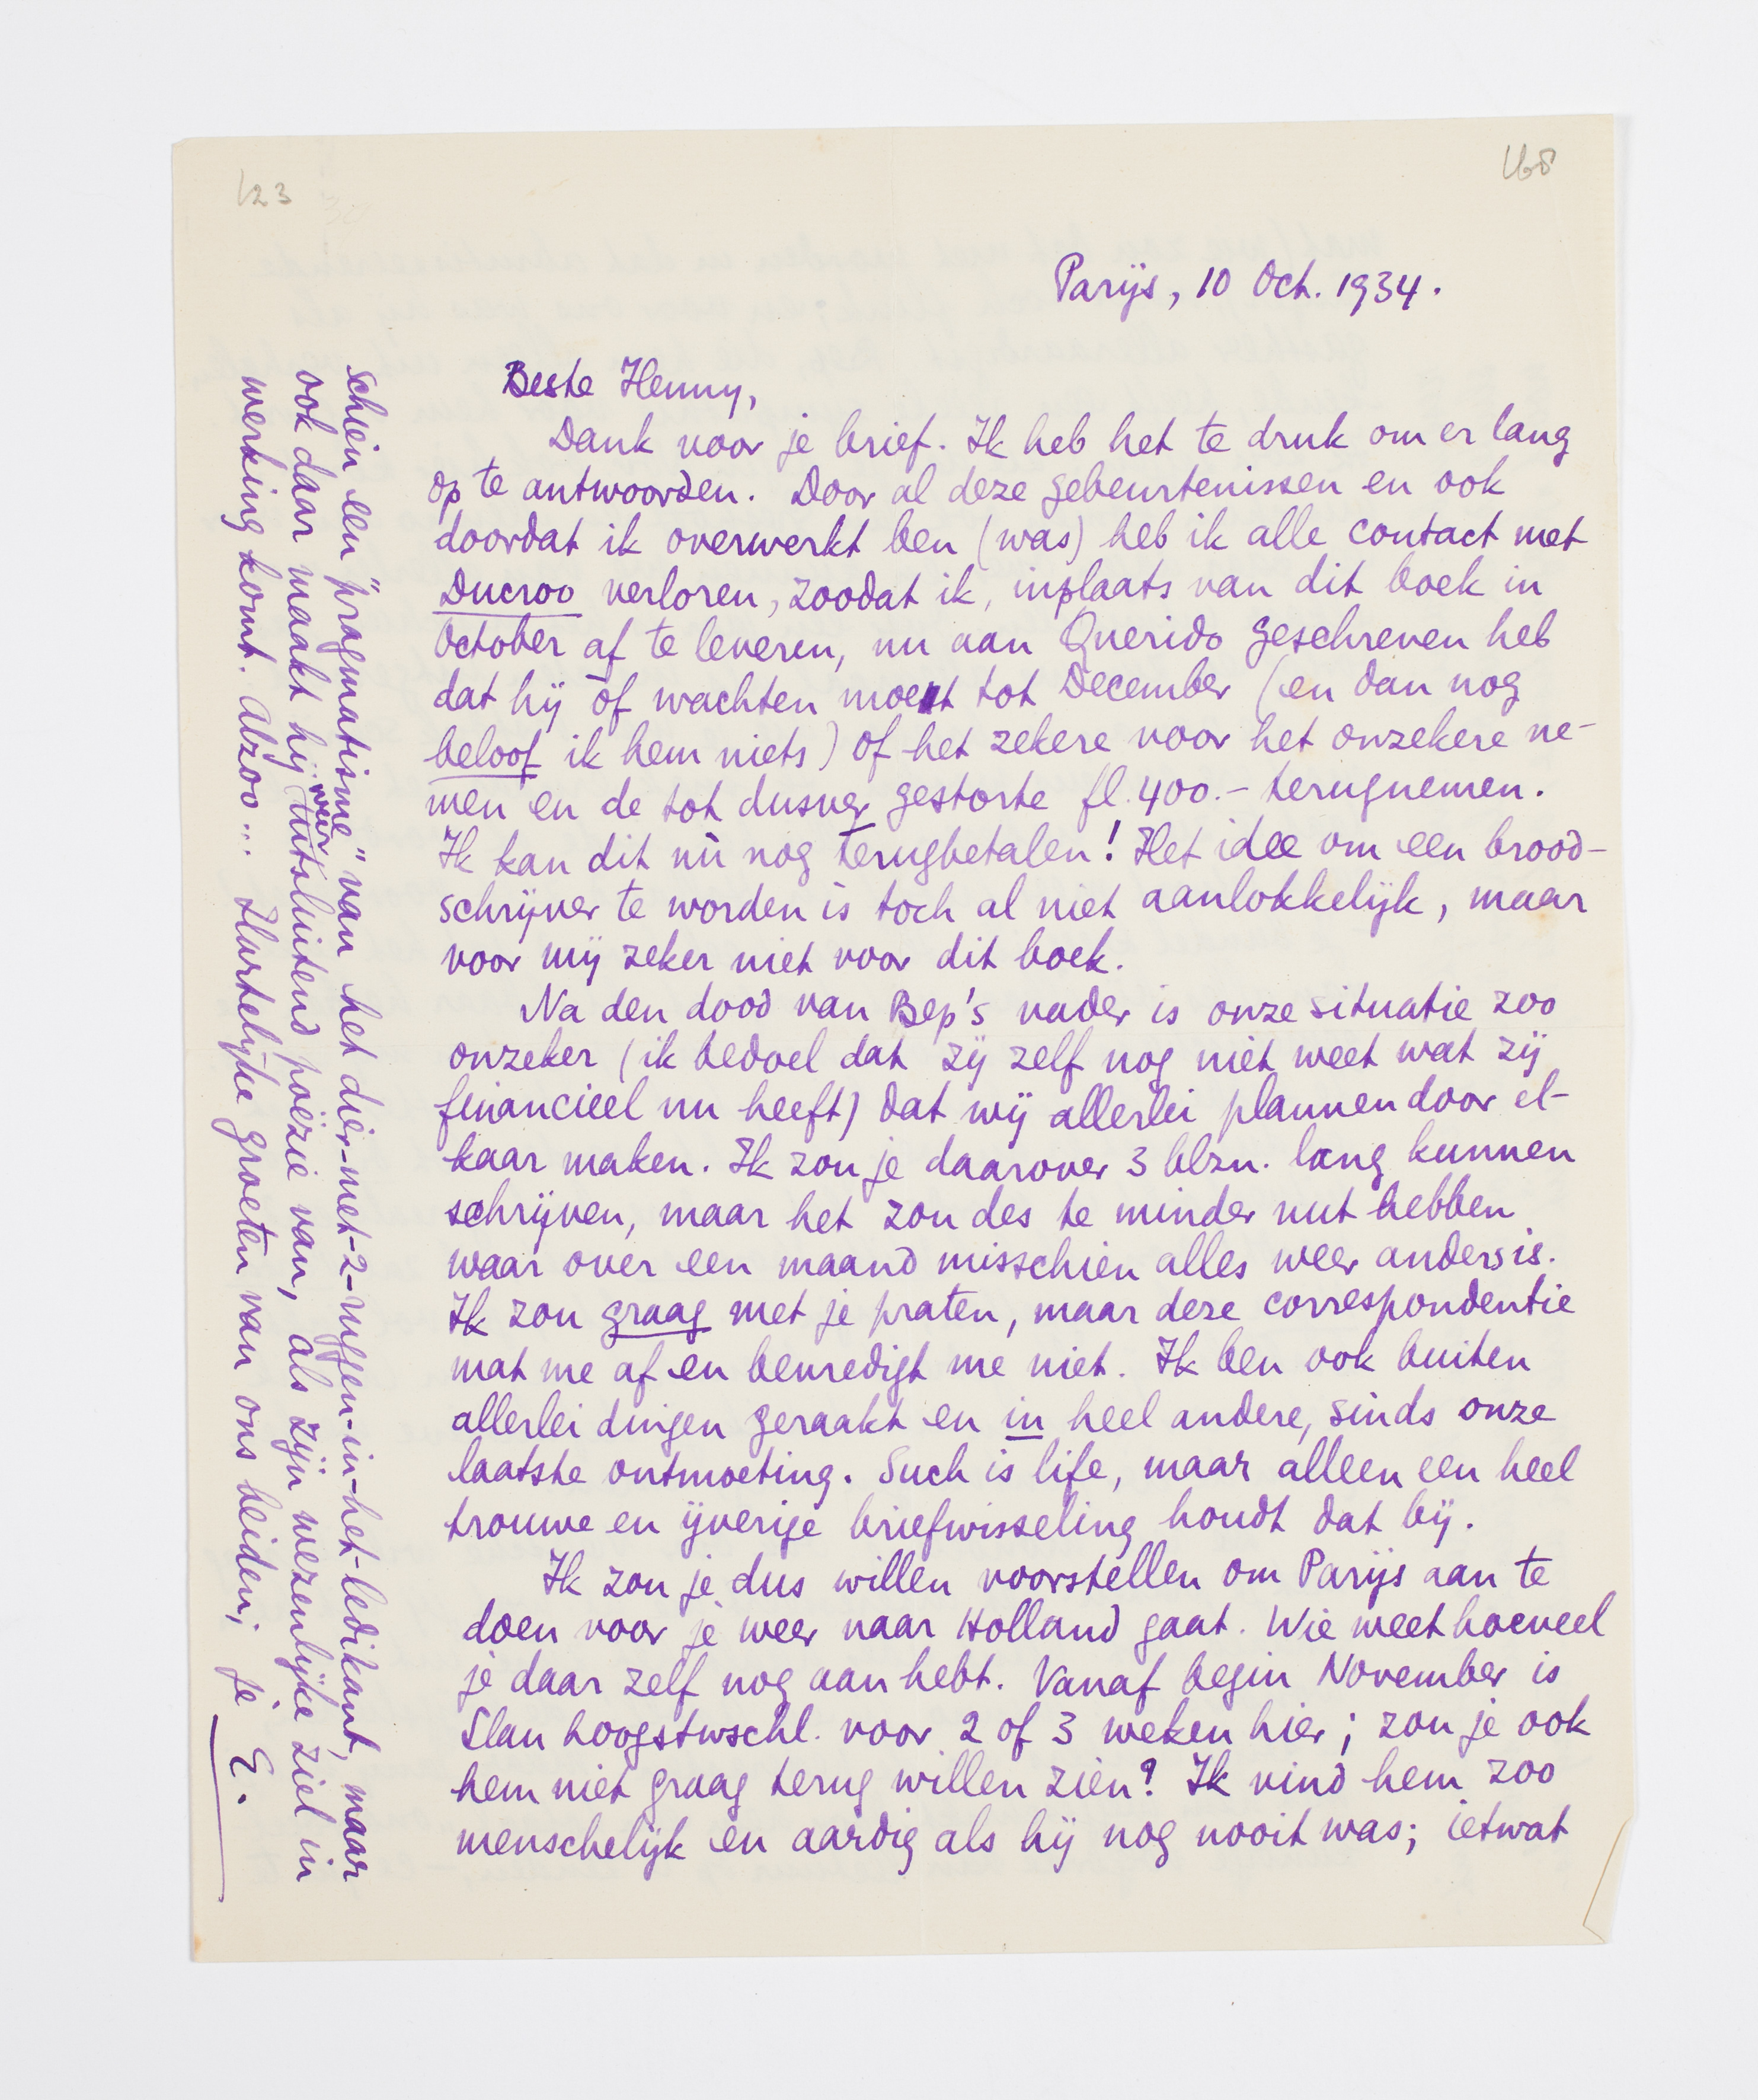 123
168
Parijs, 10 Oct. 1934.
Beste Henny,
Dank voor je brief. Ik heb het te druk om er lang
op te antwoorden. Door al deze gebeurtenissen en ook
doordat ik overwerkt ben (was) heb ik alle contact met
Ducroo verloren, zoodat ik, inplaats van dit boek in
October af te leveren, nu aan Querido geschreven heb
dat hij òf wachten moet tot December (en dan nog
beloof ik hem niets) of het zekere voor het onzekere ne-
men en de tot dusver gestorte fl. 400.- terugnemen.
Ik kan dit nù nog terugbetalen! Het idee om een brood-
schrijver te worden is toch al niet aanlokkelijk, maar
voor mij zeker niet voor dit boek.
Na den dood van Bep's vader is onze situatie zoo
onzeker (ik bedoel dat zij zelf nog niet weet wat zij
financieel nu heeft) dat wij allerlei plannen door el-
kaar maken. Ik zou je daarover 3 blzn. lang kunnen
schrijven, maar het zou des te minder nut hebben
waar over een maand misschien alles weer anders is.
Ik zou graag met je praten, maar deze correspondentie
mat me af en bevredigt me niet. Ik ben ook buiten
allerlei dingen geraakt en in heel andere, sinds onze
laatste ontmoeting. Such is life, maar alleen een heel
trouwe en ijverige briefwisseling houdt dat bij.
Ik zou je dus willen voorstellen om Parijs aan te
doen voor je weer naar Holland gaat. Wie weet hoeveel
je daar zelf nog aan hebt. Vanaf begin November is
Slau hoogstwschl. voor 2 of 3 weken hier; zou je ook
hem niet graag terug willen zien? Ik vind hem zoo
menschelijk en aardig als hij nog nooit was; ietwat
schien een "pragmatisme" van het dier-met-2-ruggen-in-het-ledikant, maar
ook daar maakt hij weer uitsluitend poëzie van, als zijn wezenlijke ziel in
werking komt. Alzoo... Hartelijke groeten van ons beiden, je E.